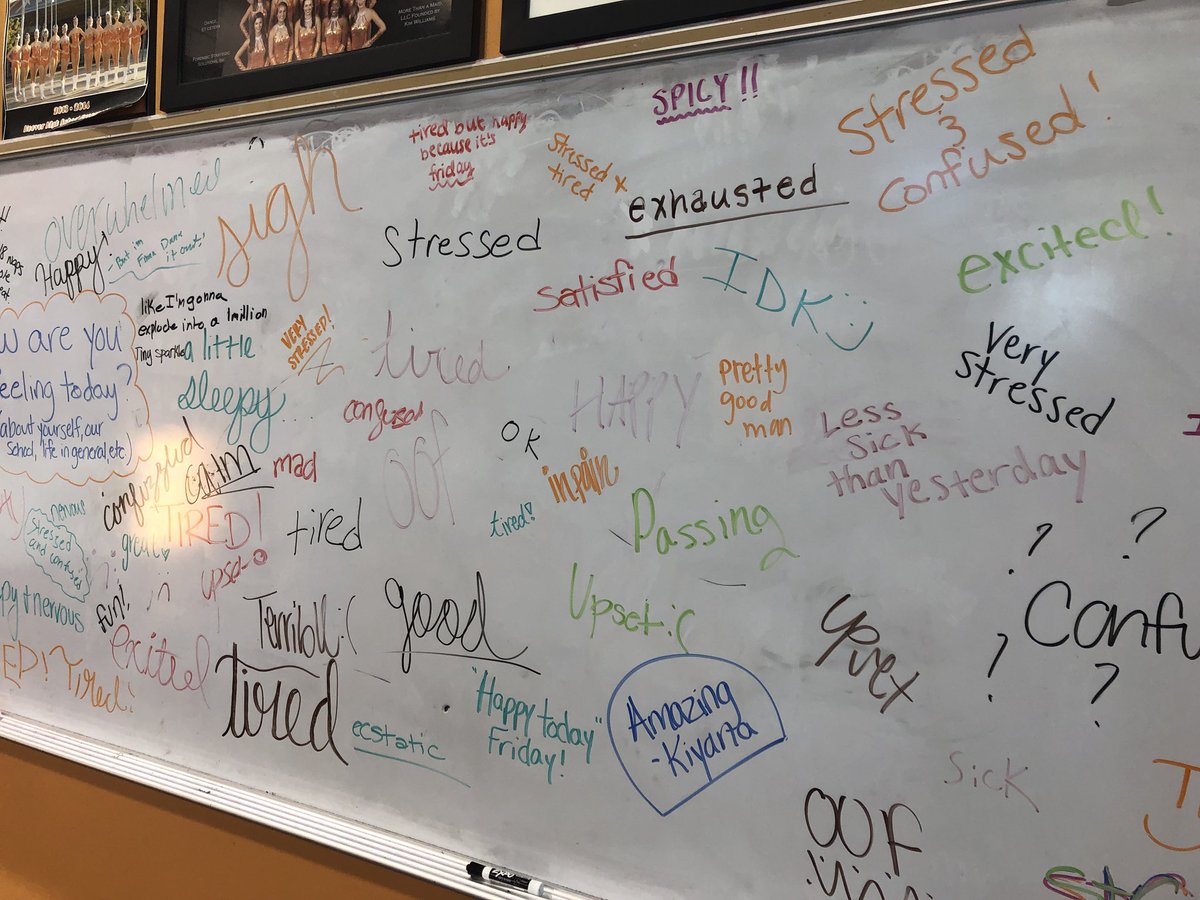 MORE THAN A MAID
LLC FOUNDED BY
KIM WILLIAMS
FORENSIC STRATEGIC
SOLUTIONS, INC
SPICY!!
Stressed
&
Confused!
tired but happy
because it's
friday
Stressed +
tired
exhausted
sigh
overwhelmed
Happy
-But im
it out.
Stressed
Satisfied
IDK
excited!
like I'm gonna
explode into a 1 million
Tiny sparkle
VERY
STRESSED!
are you
feeling today?
(about yourself, our
School, life in general, etc)
a little
sleepy
tired
HAPPY
pretty
good
man
Very
stressed
confused
OOF
OK
Less
Sick
than
yesterday
calm
mad
in pain
TIRED!
tired
tired!
Passing
nervous
Stressed
and confused
great
upset
?
?
nervous
fun!
excited
Terribll :(
good
Upset :(
Confu
?
?
Tired!
tired
ecstatic
"Happy today"
Friday!
Amazing
-Kiyarra
Sick
OOF
EXPO